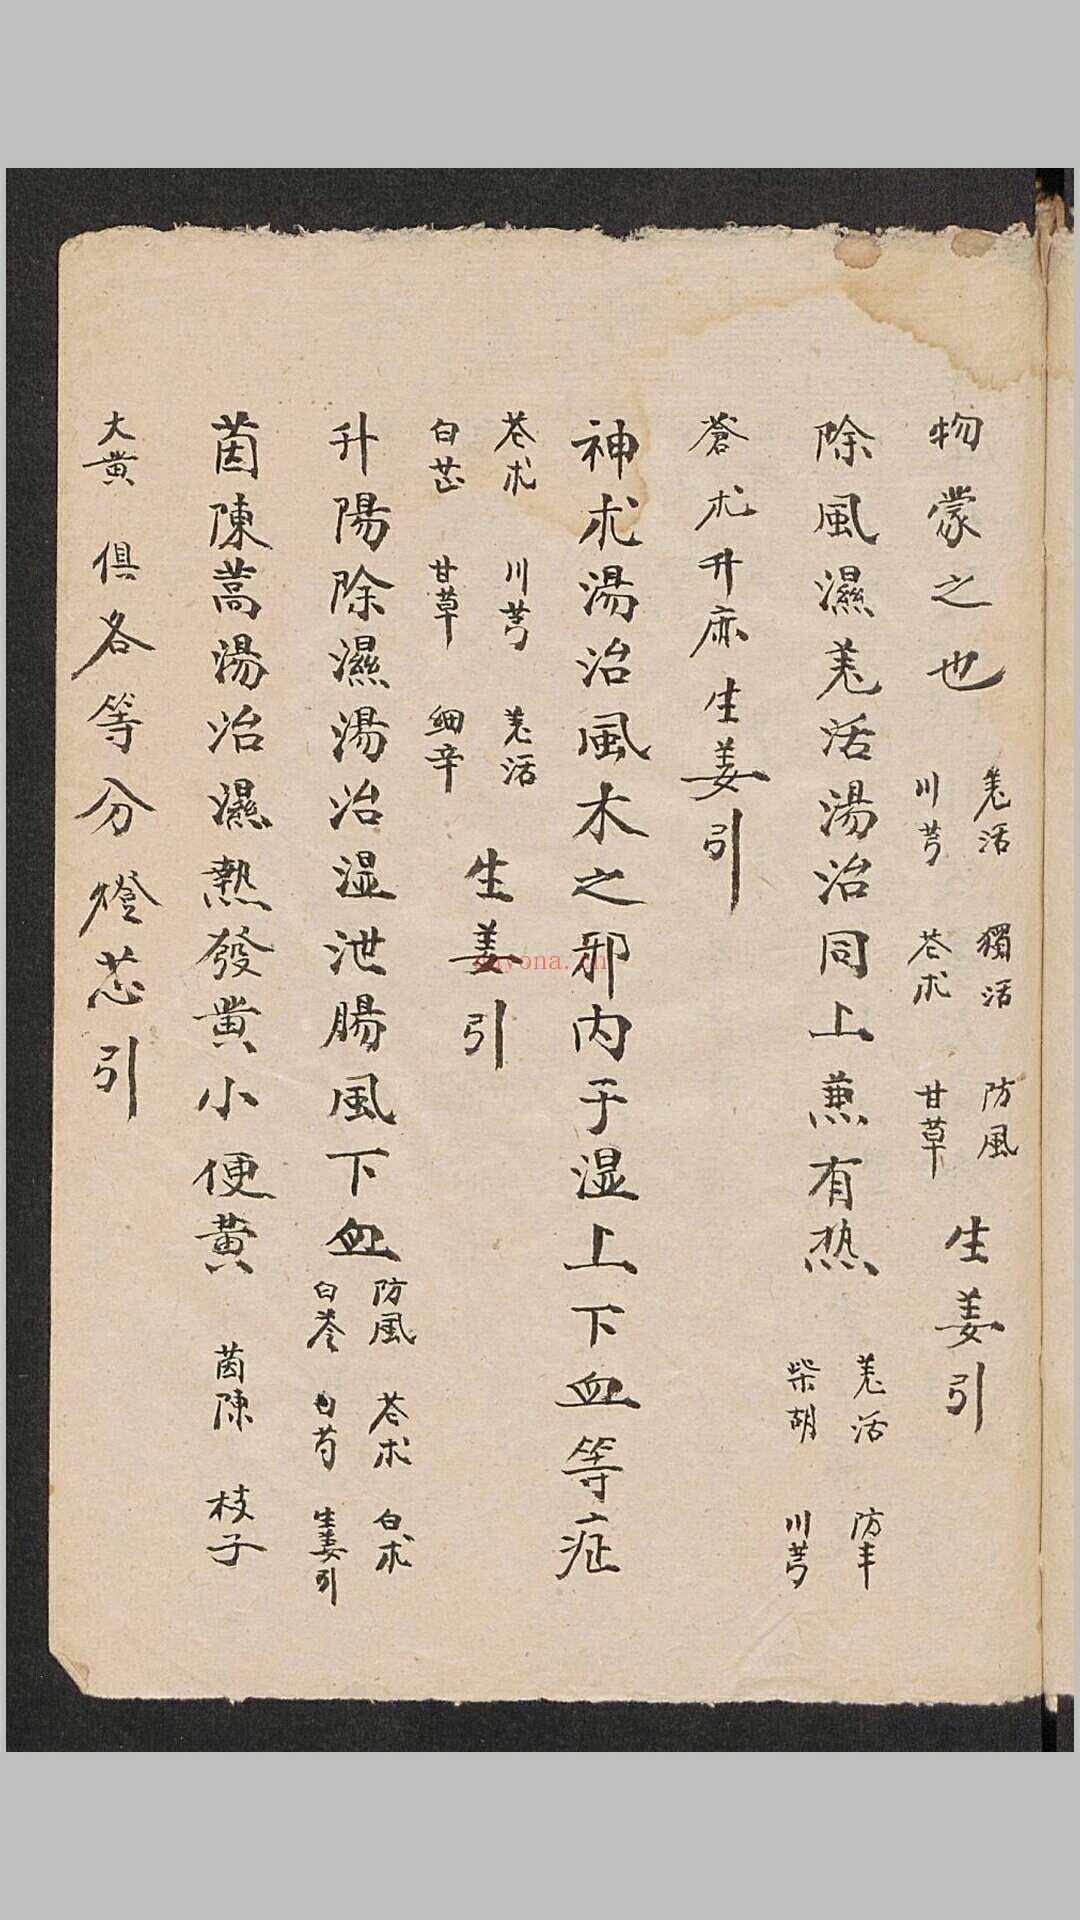 物蒙之也 羌活 獨活 防風 川芎 苍朮 甘草 生姜引
除風濕羌活湯治同上兼有热 羌活 防丰 柴胡 川芎
蒼朮升麻生姜引
神朮湯治風木之邪内于湿上下血等症
苍朮 川芎 羌活 白芷 甘草 细辛 生姜引
升陽除濕湯治湿泄腸風下血 防風 苍朮 白朮 白苓 白芍 生姜引
茵陳蒿湯治濕熱發黄小便黄 茵陳 枝子
大黄 俱各等分燈芯引